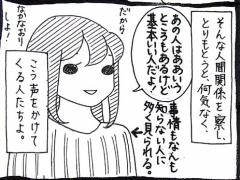 そんな人間関係を察し、
とりもとうと、何気なく、
あの人はああいう
ところもあるけど
基本いい人だよ!
だから
なかなおり
しよ!
事情もなんも
知らない人に
多く見られる。
こう声をかけて
くる人たちよ。